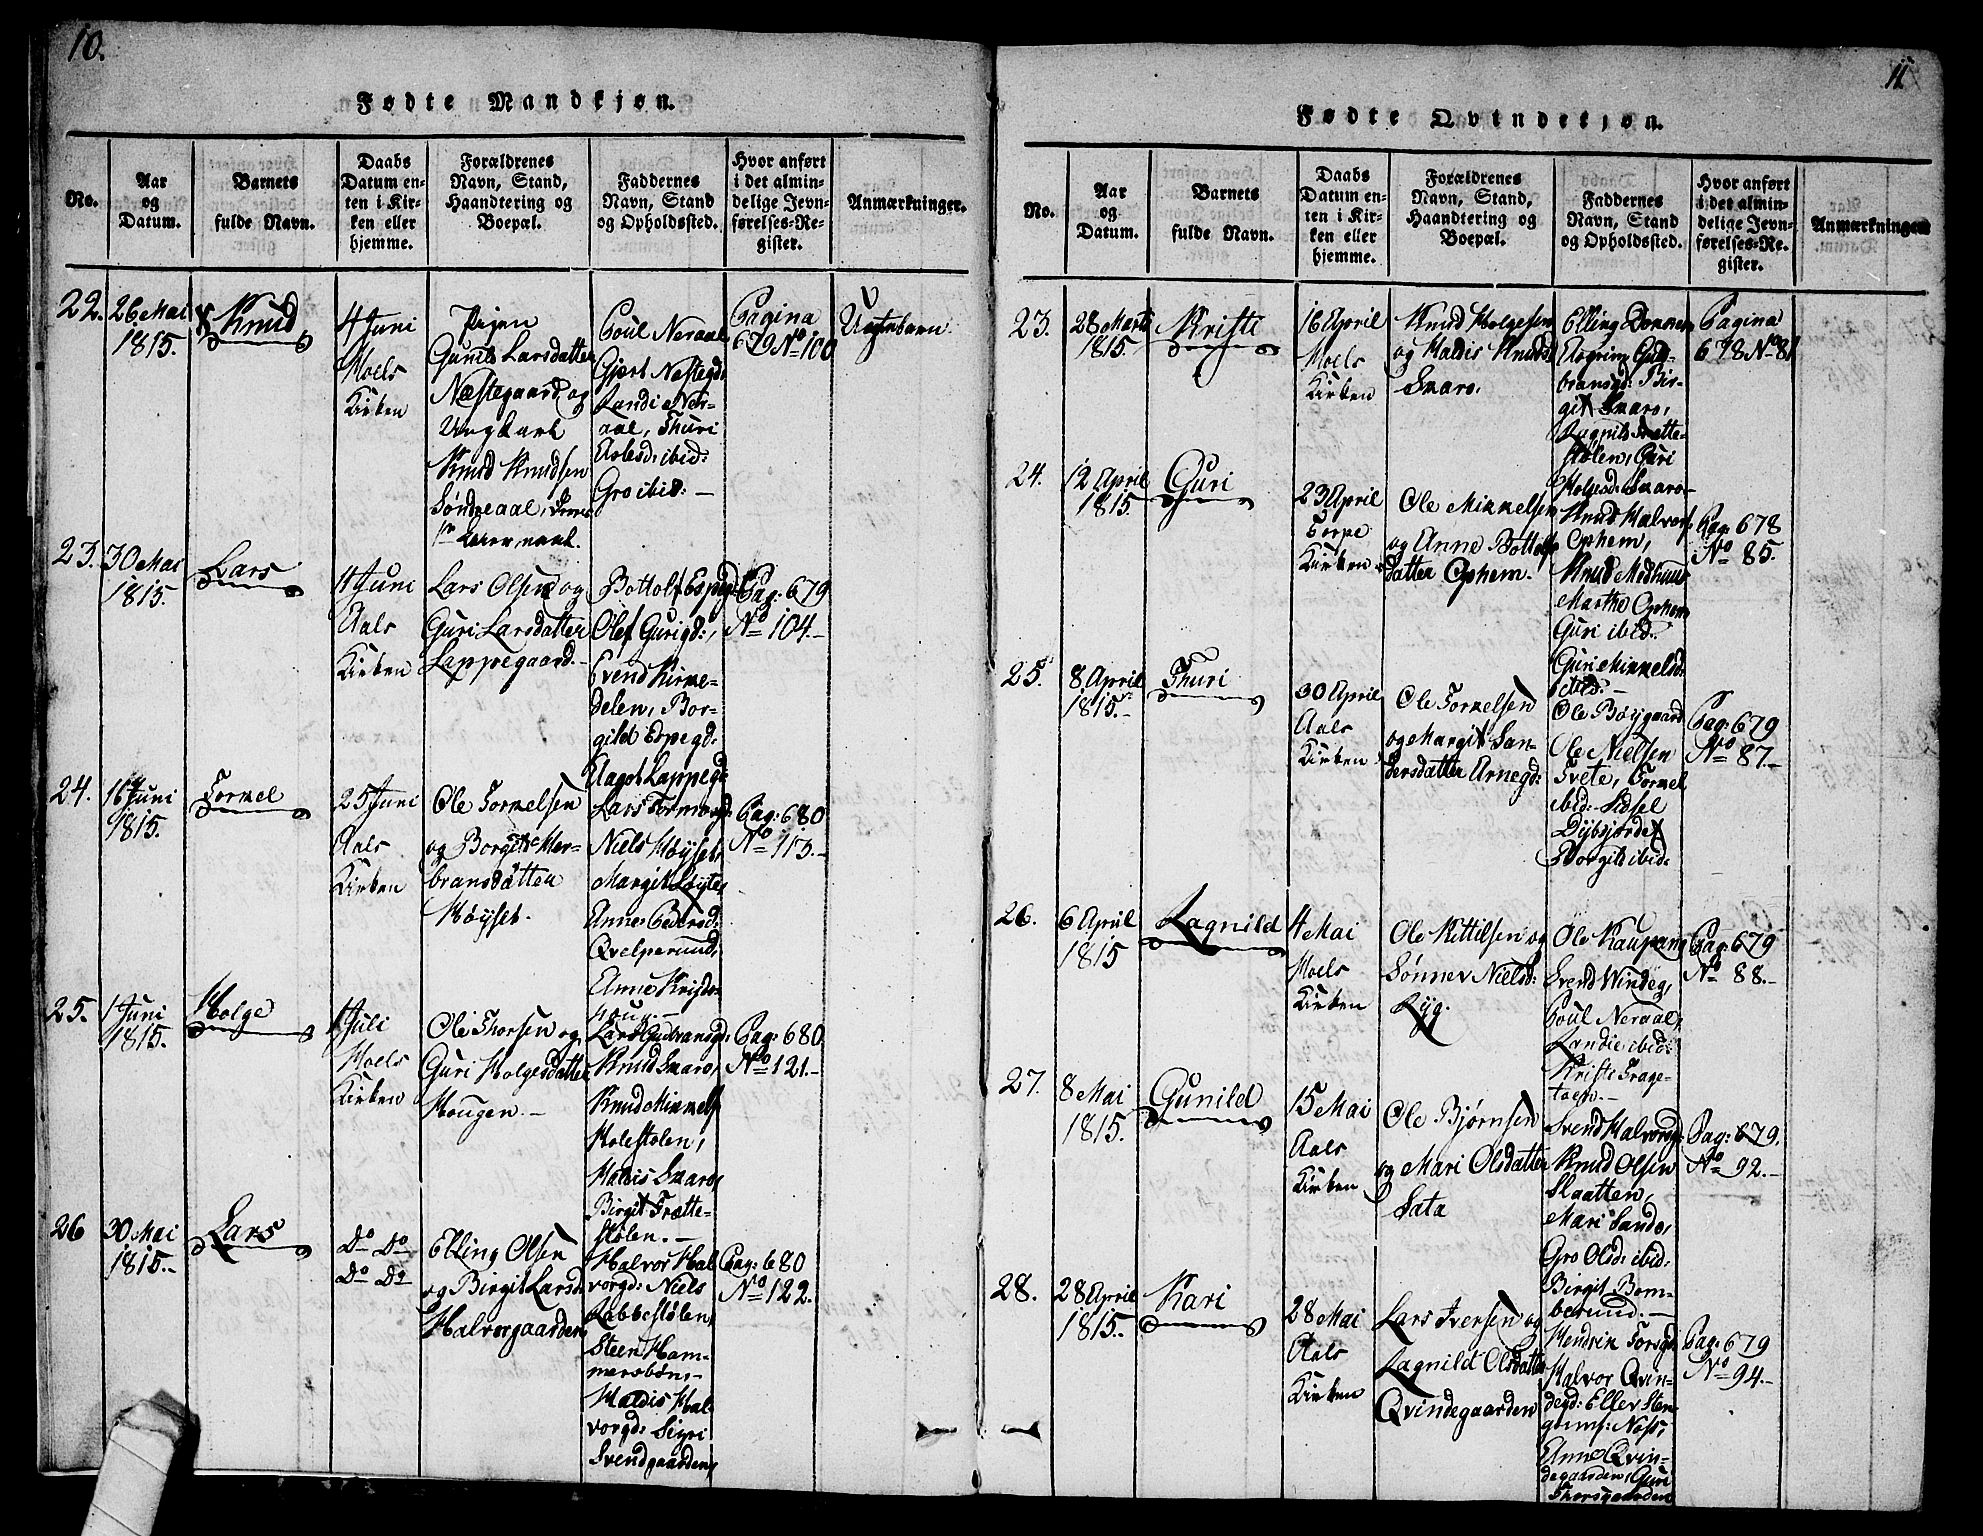 10.
Fødte Mandkjøn.
No.
Aar
og
Datum.
Barnets
fulde Navn.
Daabs
Datum en-
ten i Kir-
ken eller
hjemme.
Forældrenes
Navn, Stand,
Haandtering og
Boepæl.
Faddernes
Navn, Stand
og Opholdssted.
Hvor anført
i det almin-
delige Jevn-
førelses-Re-
gister.
Anmærkninger.
22.
26 Mai
1815.
Knud
4 Juni
Hoels
Kirken
Pigen
Gunild Larsdatter
Næstegaard og
Ungkarl
Knud Knudsen
Søndreaal,
Poul Neraal
Gjert Nestegd:
Randi Ner-
aal, Thuri
ibid:
Gro ibid: —
Pagina
679 No 100
Uægtebarn
23.
30 Mai
1815.
Lars
4 Juni
Aals
Kirken
Lars Olsen og
Guri Larsdatter
Lappegaard. —
Bottolf Espegd:
Olef Gurigd:,
Svend Kirke-
delen, Bor-
gild Espegd:
Aagot Lappegd:
Pag: 679
No 104. —
24.
16 Juni
1815.
Torkel
25 Juni
Aals
Kirken
Ole Torkelsen
og Borgild Her-
bransdatter
Høyset.
Lars Tormodsgd:
Niels Høyset,
Margit Løyte,
Anne Pedersd:
Qvelperund,
Anne Krigds-
houg. —
Pag: 680
No 113. —
25.
1 Juni
1815.
Holge
1 Juli
Hoels
Kirken
Ole Thorsen og
Guri Holgesdatter
Hougen. —
Lars Gulbrandsgd:
Knud Snaro,
Knud Mikkels:
Holestølen,
Haldis Snaro,
Birgit Trætte-
stølen. —
Pag: 680
No 121. —
26
30 Mai
1815. —
Lars
Do Do
Do Do
Elling Olsen
og Birgit Larsd:
Halvorgaarden
Halvor Hal-
vorgd: Niels
Rabbestølen,
Steen Ham-
mersbøn, —
Haldis Hal-
vorgd: Sigri
Svendgaarden,
Pag: 680
No 122. —
11
Fødte Qvindekjøn.
No.
Aar
og
Datum.
Barnets
fulde Navn.
Daabs
Datum en-
ten i Kir-
ken eller
hjemme.
Forældrenes
Navn, Stand,
Haandtering og
Boepæl.
Faddernes
Navn, Stand
og Opholdssted.
Hvor anført
i det almin-
delige Jevn-
førelses-Re-
gister.
Anmærkninger
23.
28 Marti
1815.
Kristi
16 April
Hoels
Kirken
Knud Holgesen
og Haldis Knudsd:
Snaro.
Elling
Asgrim Gul-
bransgd: Bir-
git Snaro,
Ragnild Trætte-
stølen, Guri
Holgesd: Snaro —
Pagina
678 No 81
24.
12 April
1815.
Guri
23 April
Torpe
Kirken
Ole Mikkelsen
og Anne Bottolfs-
datter Ophem.
Knud Halvors:
Ophem,
Knud Medhuus
Marthe Ophem
Guri ibid.
Guri Mikkelsd:
ibid: —
Pag: 678
No 85.
25.
8 April
1815. —
Thuri
30 April
Aals
Kirken
Ole Torkelsen
og Margit San-
dersdatter Arnegd:
Ole Bøygaard
Ole Nielsen
Tvete, Torkel
ibid: Sidsel
Dybsjorde,
Borgild ibid:
Pag: 679
No 87. —
26.
6 April
1815
Ragnild
4 Mai
Hoels
Kirken
Ole Kittilsen og
Sønnev Nielsd:
Ryg.
Ole Kaupang
Svend Windeg,
Poul Neraal,
Randi ibid:
Kristi Trage-
toen. —
Pag: 679
No 88. —
27.
8 Mai
1815.
Gunild
15 Mai
Aals
Kirken
Ole Bjørnsen
og Mari Olsdatter
Sata
Svend Halvorsgd:
Knud Olsen
Slaatten,
Mari Sando,
Gro Olsd: ibid:
Birgit Bom-
berund. —
Pag: 679.
No 92. —
28.
28 April
1815.
Kari
28 Mai
Aals
Kirken
Lars Iversen og
Ragnild Olsdatter
Qvindegaarden
Hendrik Torsgd:
Halvor Qvin-
degd: Eller Sten-
Næs,
Anne Qvin-
degaarden, Guri
Thorsgaarden
Pag: 679
No 94. —